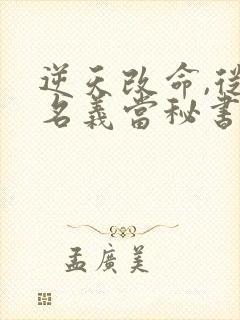 逆天改命,從
名義當秘書
孟廣美